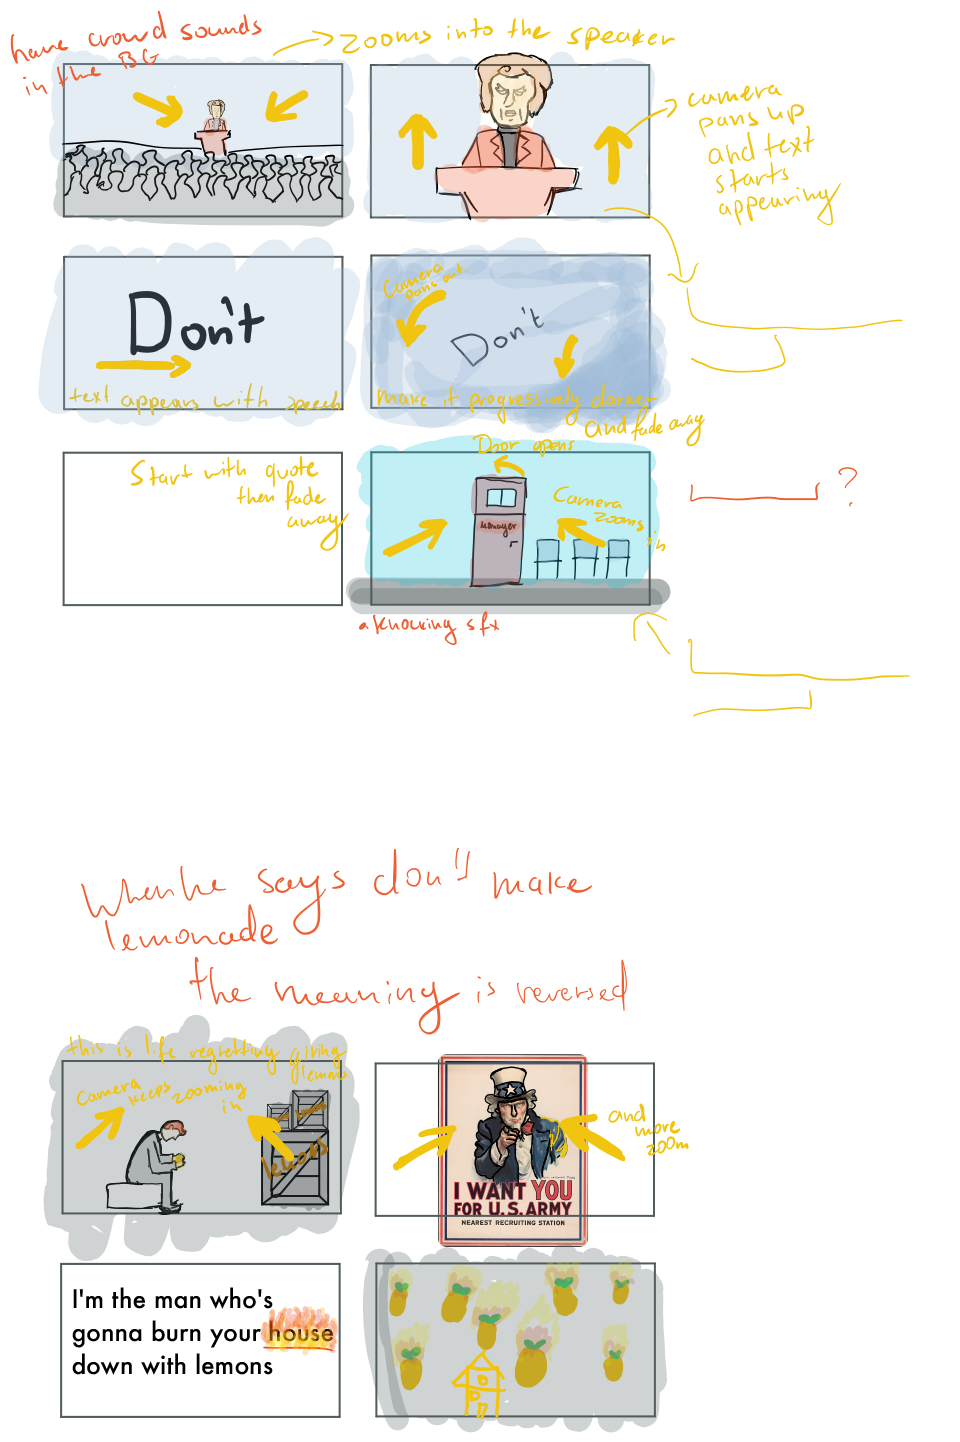 have crowd sounds
in the BG
zooms into the speaker
camera
pans up
and text
starts
appearing
Don't
text appears with speech
Camera
pans out
Don't
make it progressively darker
and fade away
Start with quote
then fade
away
Door opens
Manager
Camera
zooms
in
a knocking sfx
?
When he says don't make
lemonade
the meaning is reversed
this is life regretting giving
lemons
Camera keeps zooming
in
lemons
I WANT YOU
FOR U.S. ARMY
NEAREST RECRUITING STATION
and
more
zoom
I'm the man who's
gonna burn your house
down with lemons